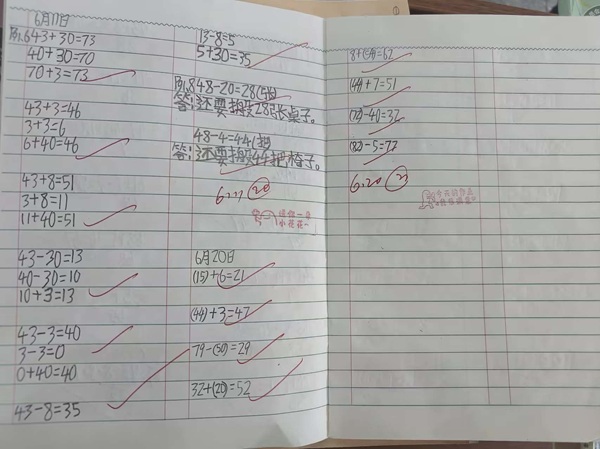 6月17日
例.6 43+30=73
40+30=70
70+3=73
43+3=46
3+3=6
6+40=46
43+8=51
3+8=11
11+40=51
43-30=13
40-30=10
10+3=13
43-3=40
3-3=0
0+40=40
43-8=35
13-8=5
5+30=35
例.8 48-20=28(张)
答:还要搬28张桌子。
48-4=44(把)
答:还要搬44把椅子。
6月20日
(15)+6=21
(44)+3=47
79-(50)=29
32+(20)=52
8+(54)=62
(44)+7=51
(72)-40=32
(82)-5=77
6.20